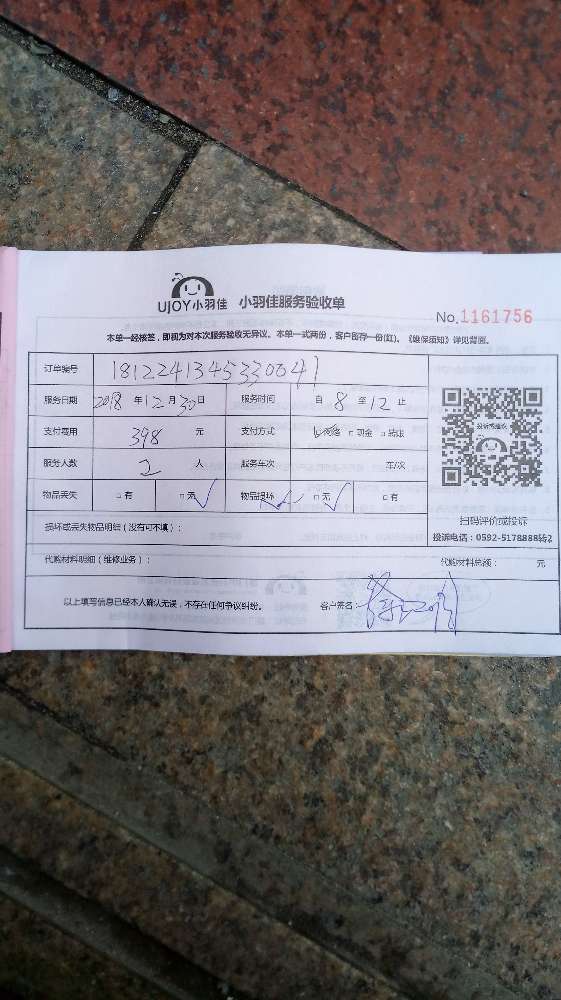 UJOY小羽佳 小羽佳服务验收单
No.1161756
本单一经核签，即视为对本次服务验收无异议。本单一式两份，客户留存一份(红)。《维保须知》详见背面。
订单编号 1812241345330041
服务日期 2018 年 12 月 30 日 服务时间 自 8 至 12 止
支付费用 398 元 支付方式 ☑网络 □现金 □转账
服务人数 2 人 服务车次 车/次
物品丢失 □有 □无 ✓ 物品损坏 □无 ✓ □有
损坏或丢失物品明细（没有可不填）：
扫码评价或投诉
投诉电话：0592-5178888转2
代购材料明细（维修业务）： 代购材料总额： 元
以上填写信息已经本人确认无误，不存在任何争议纠纷。 客户签名：